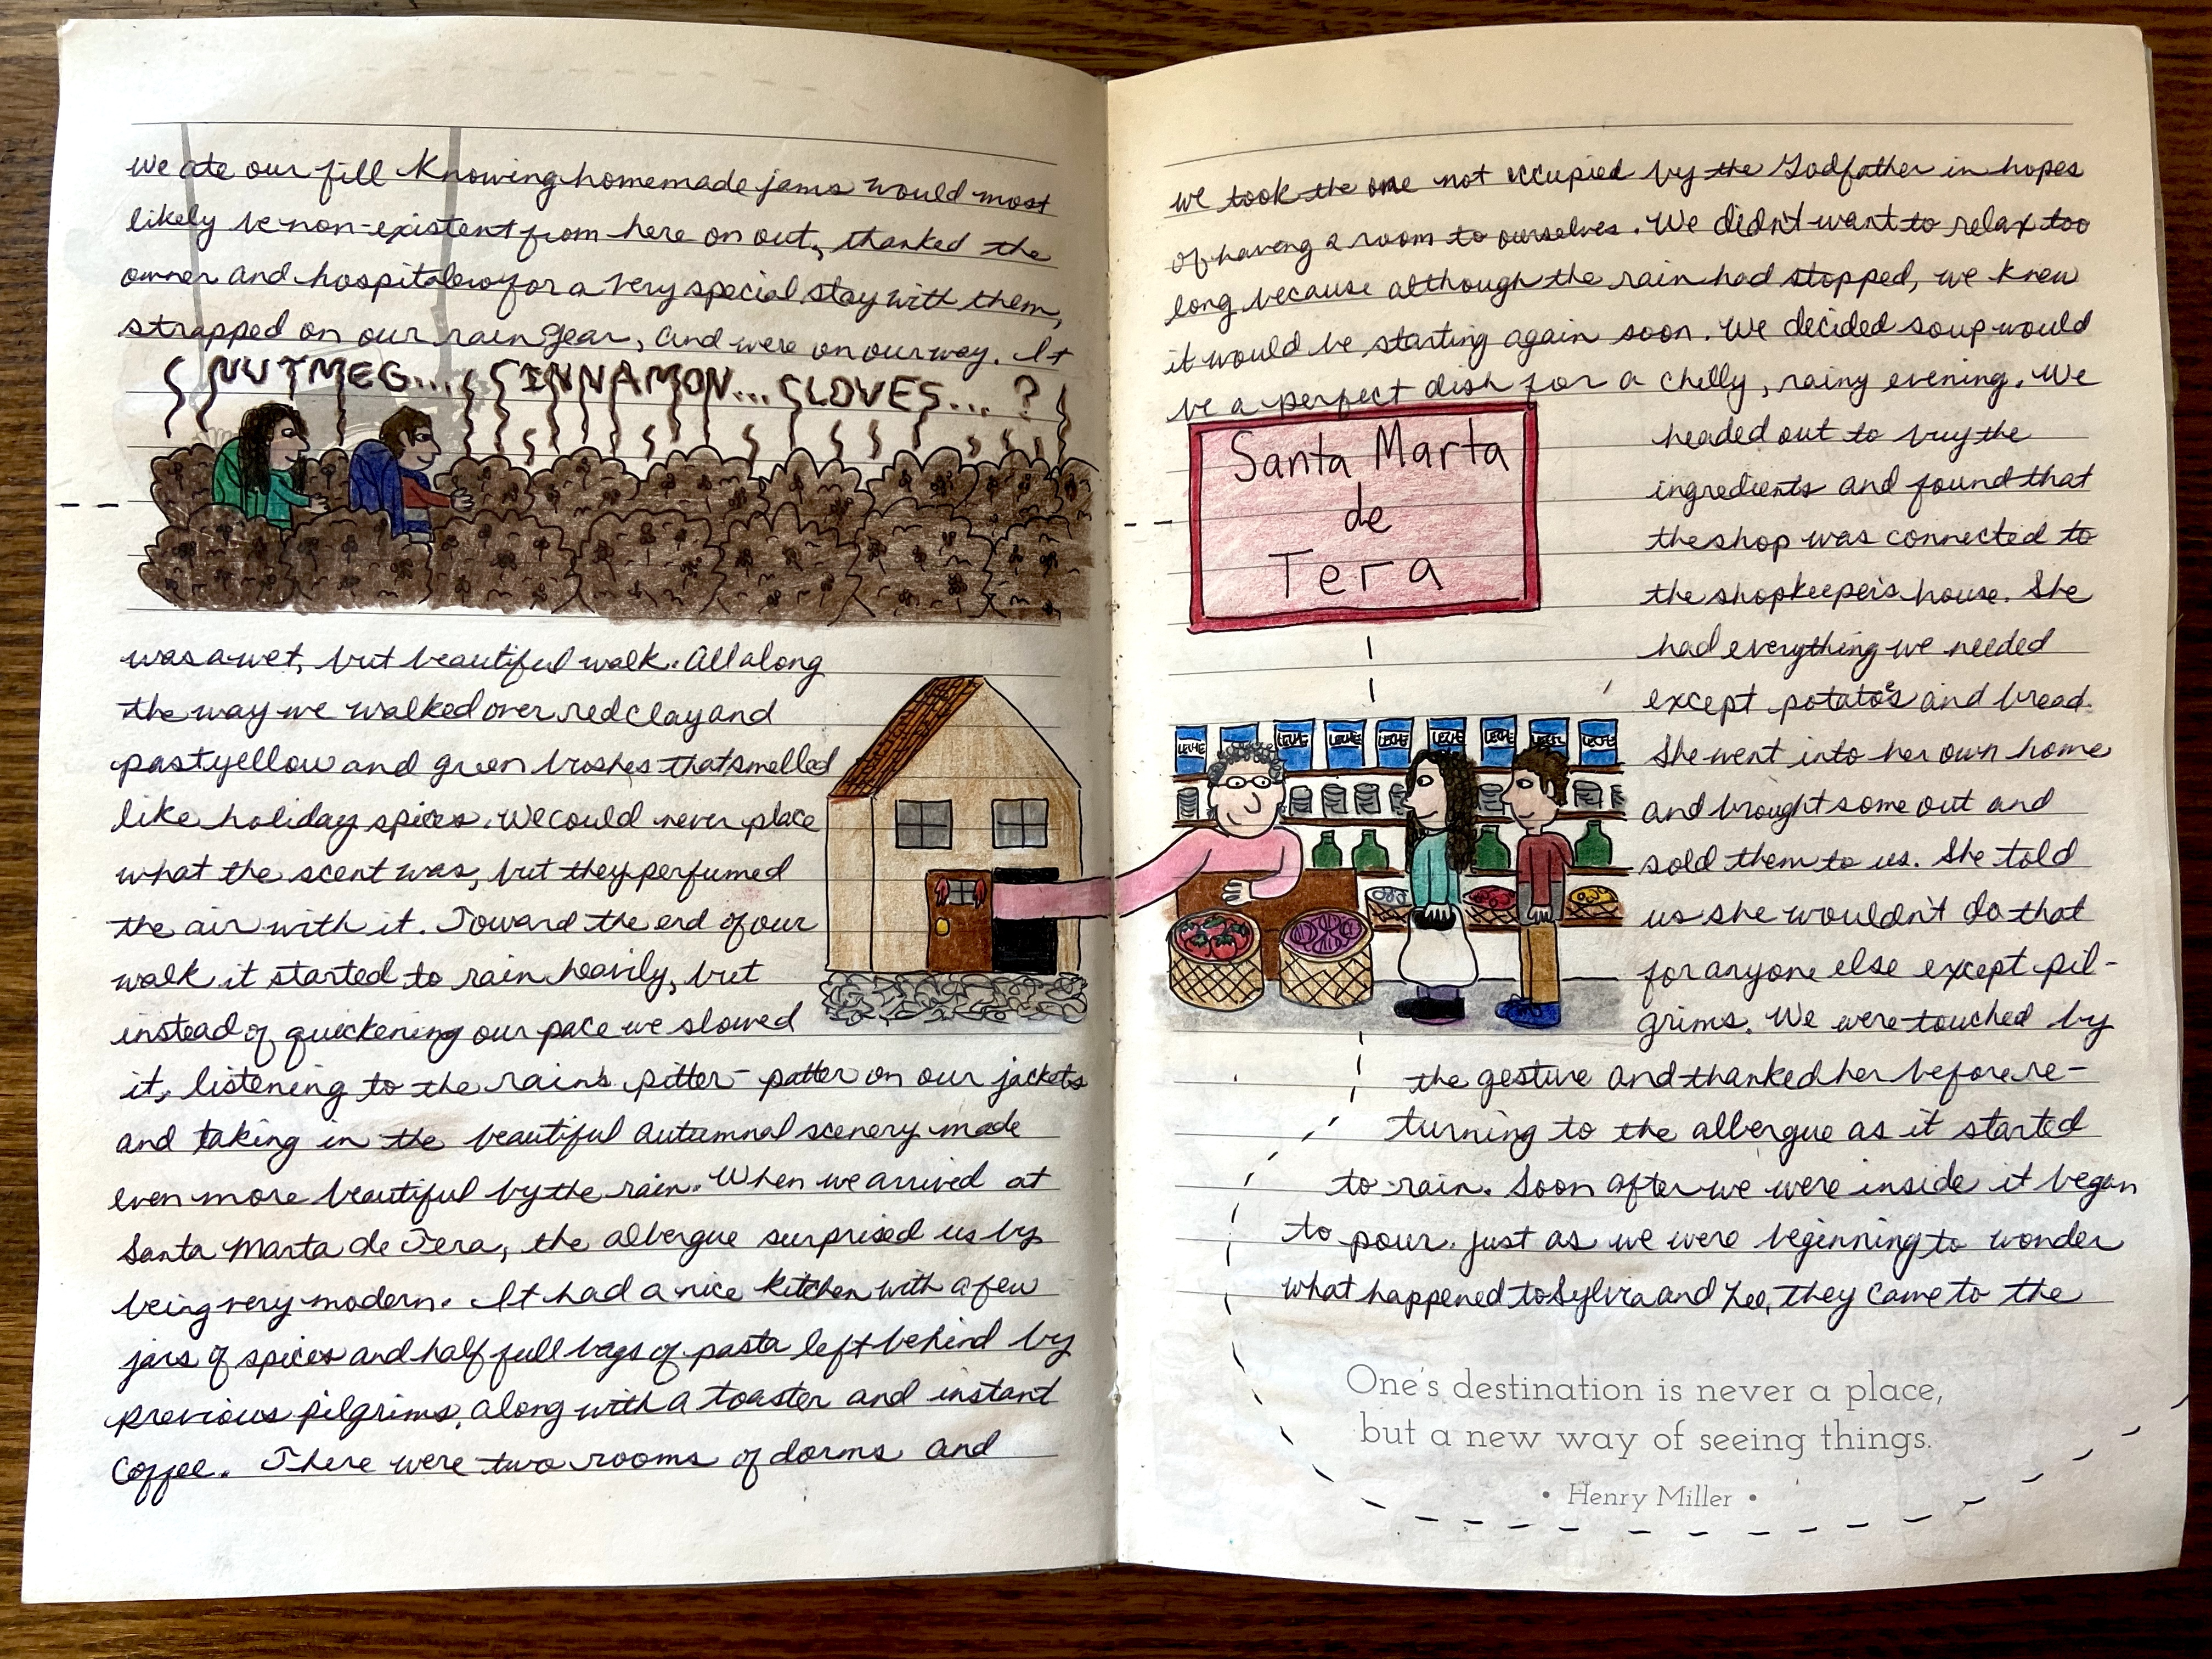 We ate our fill knowing homemade jams would most
likely be non-existent from here on out, thanked the
owner and hospitalero for a very special stay with them,
strapped on our rain gear, and were on our way. It
NUTMEG... CINNAMON... CLOVES... ?
was a wet, but beautiful walk. All along
the way we walked over red clay and
past yellow and green bushes that smelled
like holiday spices. We could never place
what the scent was, but they perfumed
the air with it. Toward the end of our
walk it started to rain heavily, but
instead of quickening our pace we slowed
it, listening to the rain's pitter-patter on our jackets
and taking in the beautiful autumnal scenery made
even more beautiful by the rain. When we arrived at
Santa Marta de Tera, the albergue surprised us by
being very modern. It had a nice kitchen with a few
jars of spices and half full bags of pasta left behind by
previous pilgrims, along with a toaster and instant
coffee. There were two rooms of dorms and
we took the one not occupied by the Godfather in hopes
of having a room to ourselves. We didn't want to relax too
long because although the rain had stopped, we knew
it would be starting again soon. We decided soup would
be a perfect dish for a chilly, rainy evening. We
Santa Marta
de
Tera
headed out to buy the
ingredients and found that
the shop was connected to
the shopkeeper's house. She
had everything we needed
except potatoes and bread.
She went into her own home
and brought some out and
sold them to us. She told
us she wouldn't do that
for anyone else except pil-
grims. We were touched by
LECHE LECHE LECHE LECHE LECHE LECHE LECHE LECHE
the gesture and thanked her before re-
turning to the albergue as it started
to rain. Soon after we were inside it began
to pour. Just as we were beginning to wonder
what happened to Sylvia and Lee, they came to the
One's destination is never a place,
but a new way of seeing things.
• Henry Miller •